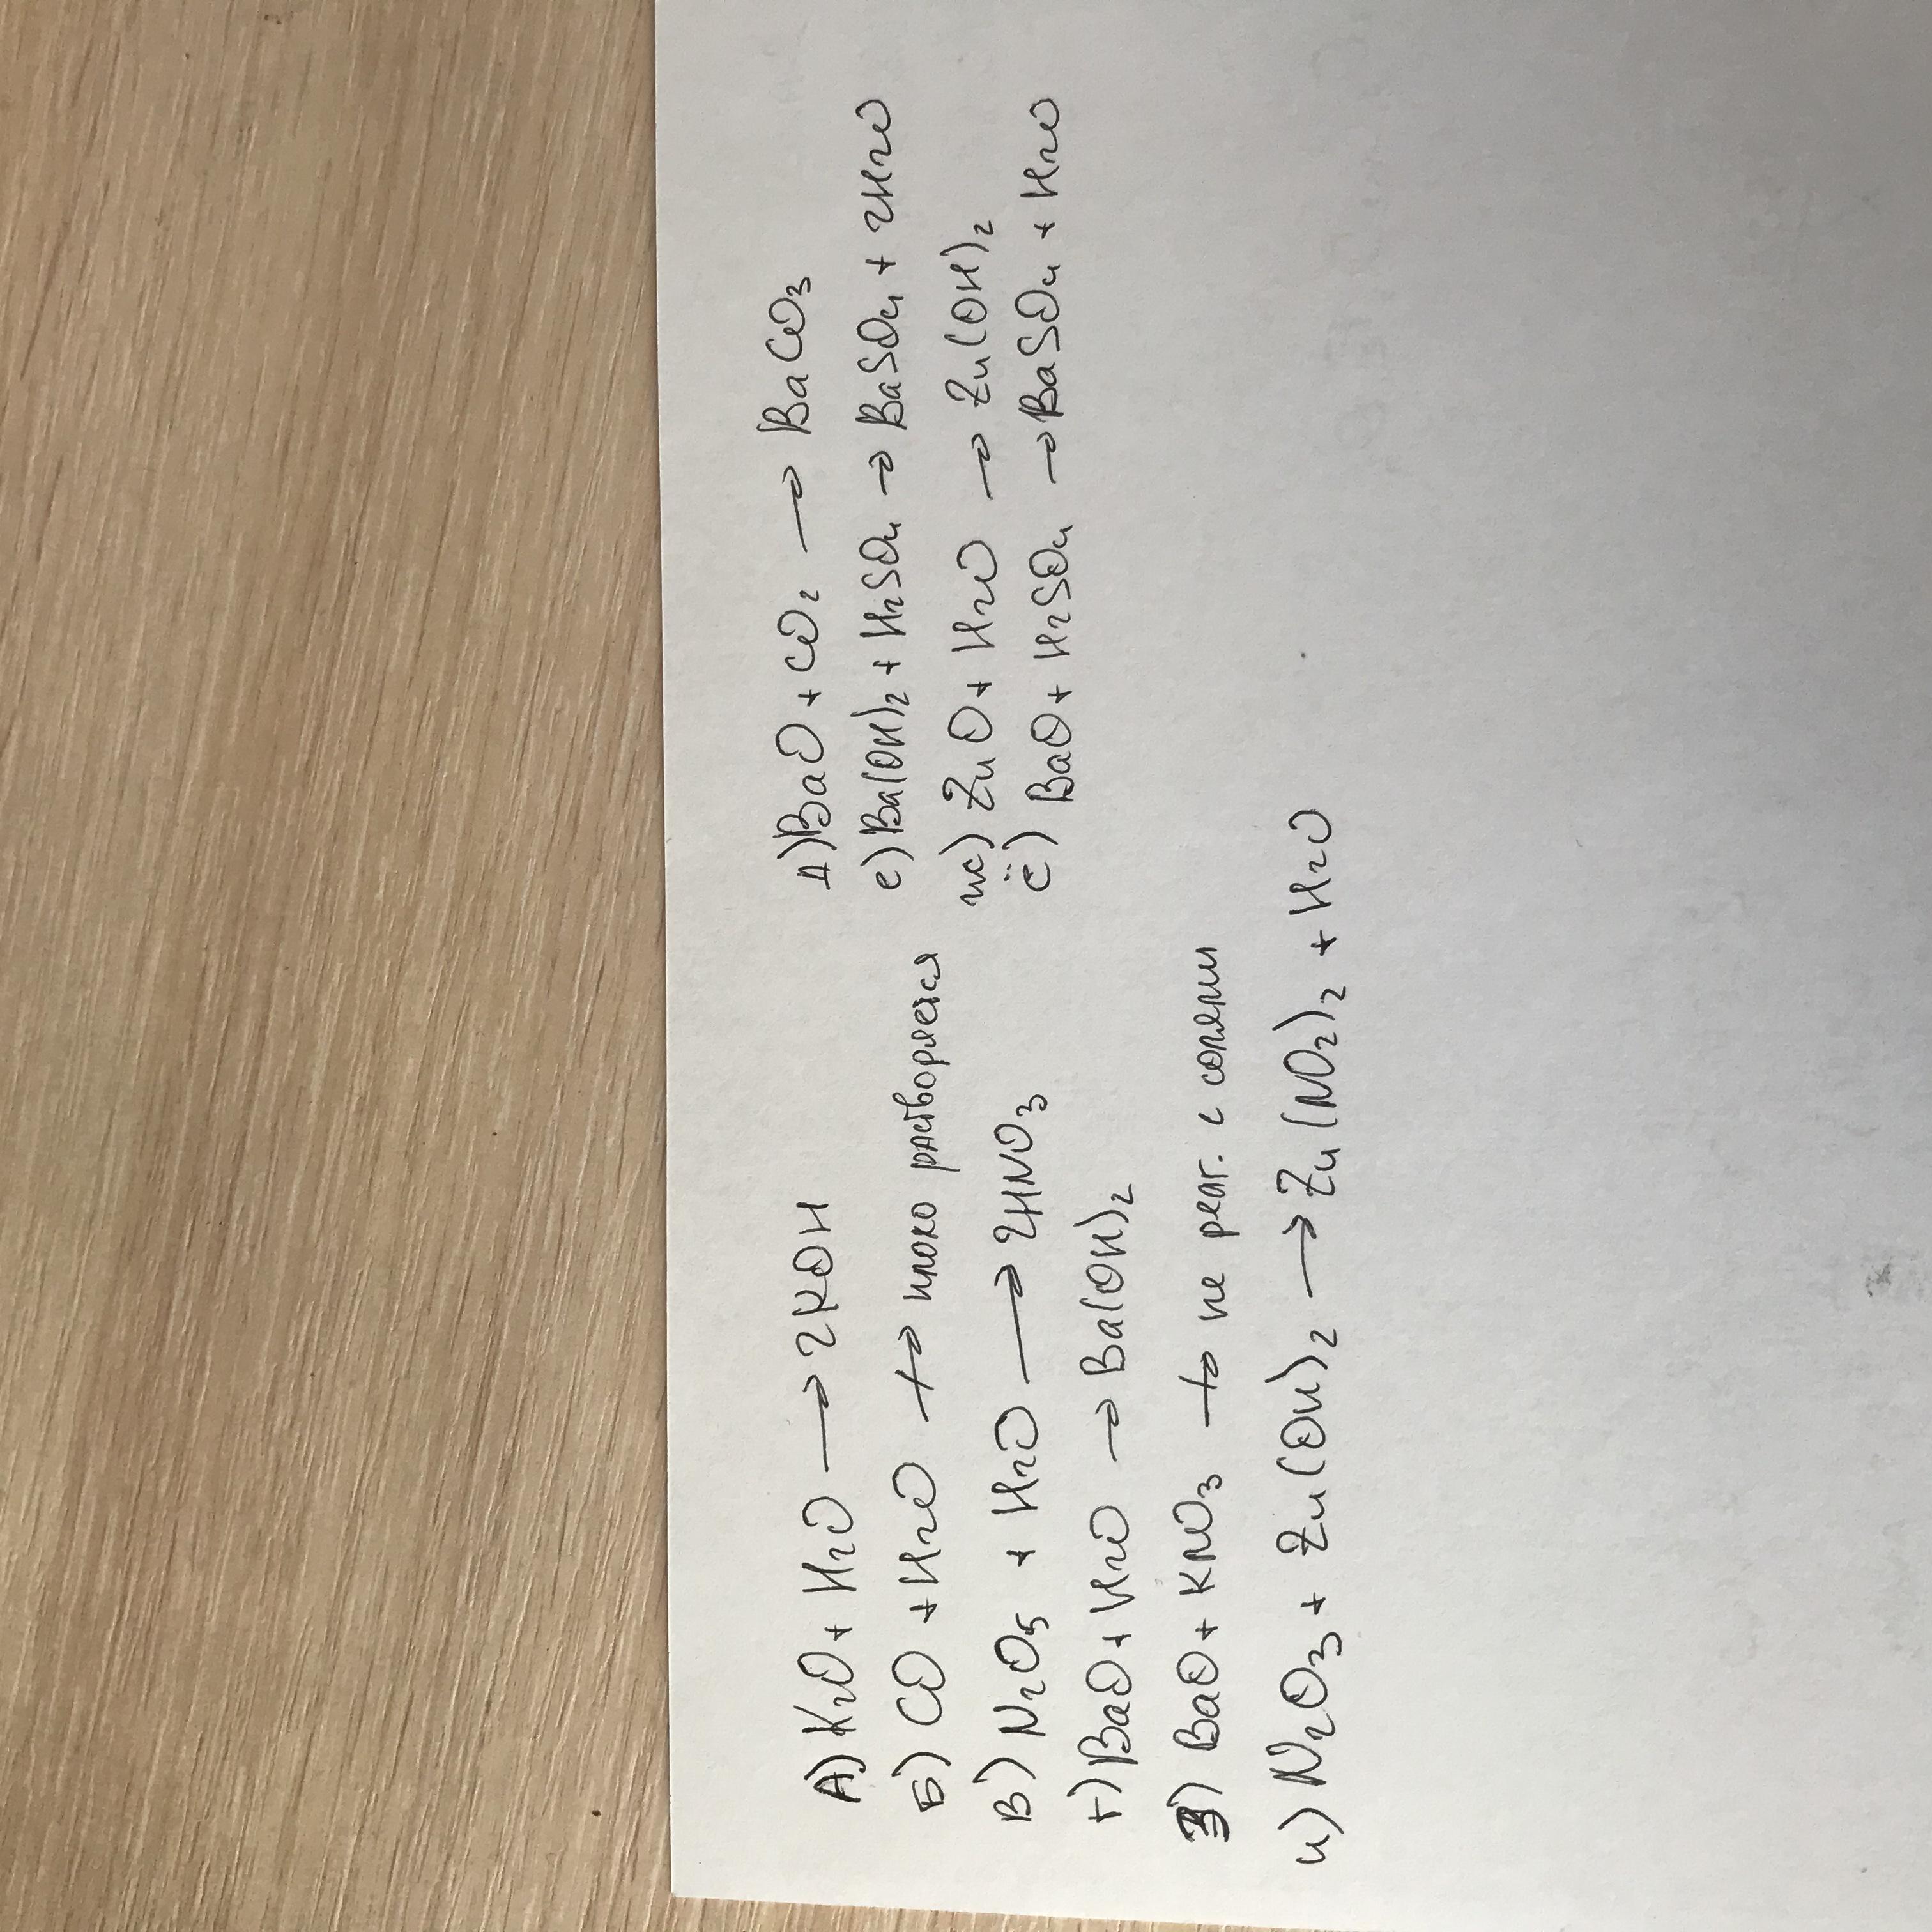 А) K2O + H2O → 2KOH
Б) CO + H2O ↛ плохо растворяется
В) N2O5 + H2O → 2HNO3
г) BaO + H2O → Ba(OH)2
З) BaO + KNO3 ↛ не реаг. с солями
и) N2O3 + Zn(OH)2 → Zn(NO2)2 + H2O
Д) BaO + CO2 → BaCO3
е) Ba(OH)2 + H2SO4 → BaSO4 + 2H2O
ж) ZnO + H2O → Zn(OH)2
ё) BaO + H2SO4 → BaSO4 + H2O